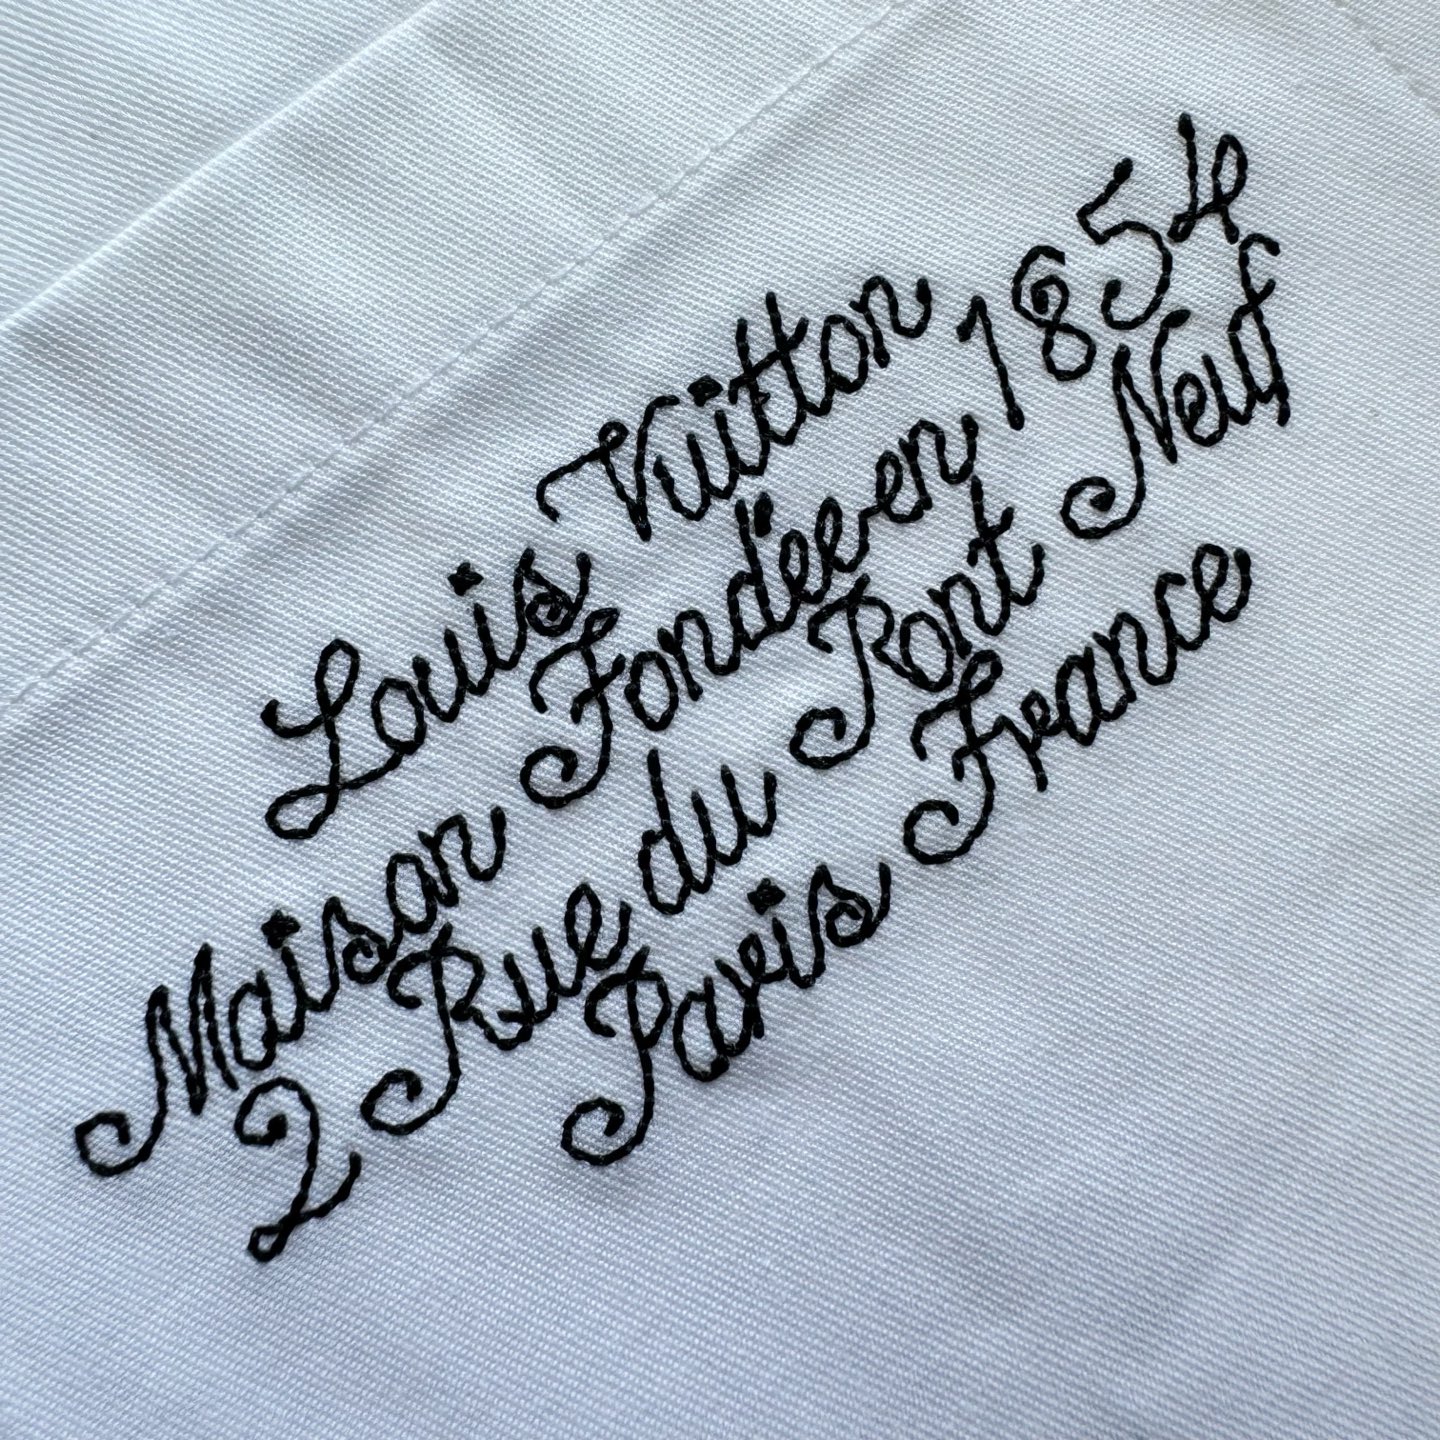 Louis Vuitton
Maison Fondée en 1854
2 Rue du Pont Neuf
Paris France